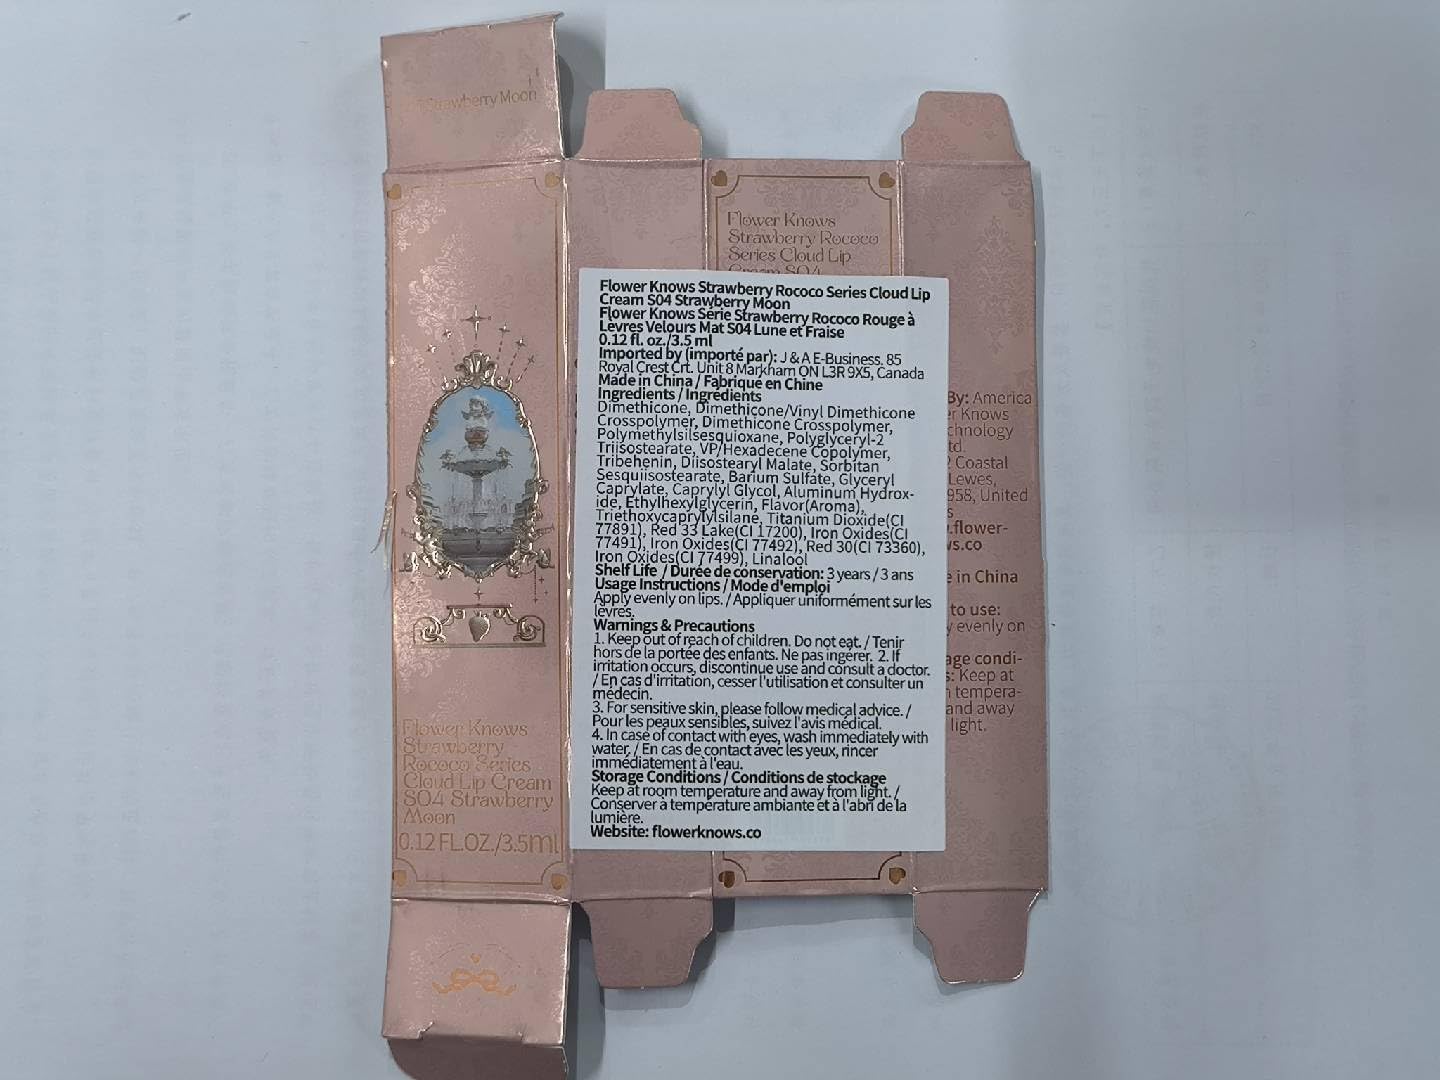 Strawberry Moon
Flower Knows
Strawberry Rococo
Series Cloud Lip
Cream S04
Flower Knows Strawberry Rococo Series Cloud Lip
Cream S04 Strawberry Moon
Flower Knows Série Strawberry Rococo Rouge à
Lèvres Velours Mat S04 Lune et Fraise
0.12 fl. oz./3.5 ml
Imported by (importé par): J & A E-Business. 85
Royal Crest Crt. Unit 8 Markham ON L3R 9X5, Canada
Made in China / Fabriqué en Chine
Ingredients / Ingrédients
Dimethicone, Dimethicone/Vinyl Dimethicone
Crosspolymer, Dimethicone Crosspolymer,
Polymethylsilsesquioxane, Polyglyceryl-2
Triisostearate, VP/Hexadecene Copolymer,
Tribehenin, Diisostearyl Malate, Sorbitan
Sesquiisostearate, Barium Sulfate, Glyceryl
Caprylate, Caprylyl Glycol, Aluminum Hydrox-
ide, Ethylhexylglycerin, Flavor(Aroma),
Triethoxycaprylylsilane, Titanium Dioxide(CI
77891), Red 33 Lake(CI 17200), Iron Oxides(CI
77491), Iron Oxides(CI 77492), Red 30(CI 73360),
Iron Oxides(CI 77499), Linalool
Shelf Life / Durée de conservation: 3 years / 3 ans
Usage Instructions / Mode d'emploi
Apply evenly on lips. / Appliquer uniformément sur les
lèvres.
Warnings & Precautions
1. Keep out of reach of children. Do not eat. / Tenir
hors de la portée des enfants. Ne pas ingérer. 2. If
irritation occurs, discontinue use and consult a doctor.
/ En cas d'irritation, cesser l'utilisation et consulter un
médecin.
3. For sensitive skin, please follow medical advice. /
Pour les peaux sensibles, suivez l'avis médical.
4. In case of contact with eyes, wash immediately with
water. / En cas de contact avec les yeux, rincer
immédiatement à l'eau.
Storage Conditions / Conditions de stockage
Keep at room temperature and away from light. /
Conserver à température ambiante et à l'abri de la
lumière.
Website: flowerknows.co
By: America
Knows
chnology
td.
Coastal
Lewes,
958, United
s
.flower-
ws.co
in China
to use:
evenly on
age condi-
s: Keep at
tempera-
and away
light.
Flower Knows
Strawberry
Rococo Series
Cloud Lip Cream
S04 Strawberry
Moon
0.12 FL.OZ./3.5ml